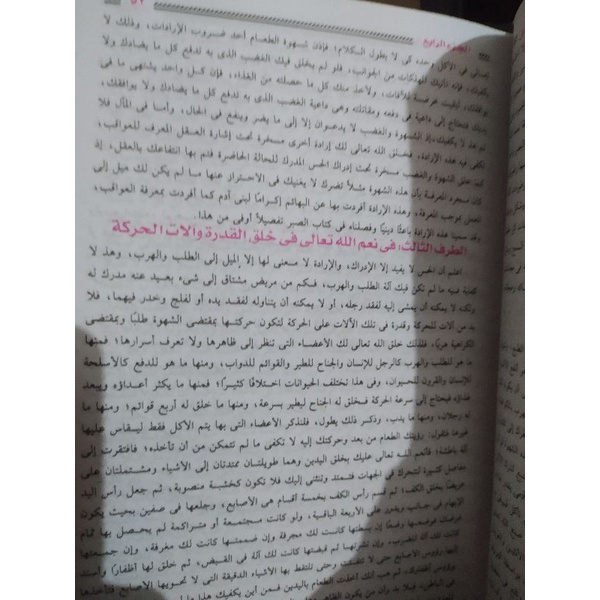 الجزء الرابع
٥٣
تعالى في الأكل وحده كى لا يطول الكلام؛ فإذن شهوة الطعام أحد ضروب الإرادات، وذلك لا
يكفيك، فإنه تأتيك المهلكات من الجوانب، فلو لم يخلق فيك الغضب الذى به تدفع كل ما يضادك ولا
يوافقك، لبقيت عرضة للآفات، ولأخذ منك كل ما حصلته من الغذاء، فإن كل واحد يشتهى ما في
يديك فتحتاج إلى داعية فى دفعه ومقاتلته وهى داعية الغضب الذى به تدفع كل ما يضادك ولا يوافقك،
ثم هذ لا يكفيك؛ إذ الشهوة والغضب لا يدعوان إلا إلى ما يضر وينفع فى الحال، وأما فى المآل فلا
تكفى فيه هذه الإرادة، فخلق الله تعالى لك إرادة أخرى مسخرة تحت إشارة العقل المعرف للعواقب،
كما خلق الشهوة والغضب مسخرة تحت إدراك الحس المدرك للحالة الحاضرة فتم بها انتفاعك بالعقل، إذ
كان مجرد المعرفة بأن هذه الشهوة مثلاً تضرك لا يغنيك فى الاحتراز عنها ما لم يكن لك ميل إلى
العمل بموجب المعرفة، وهذه الإرادة أفردت بها عن البهائم إكرامًا لبنى آدم كما أفردت بمعرفة العواقب،
وقد سمينا هذه الإرادة باعثًا دينيًا وفصلناه فى كتاب الصبر تفصيلاً أوفى من هذا.
الطرف الثالث: فى نعم الله تعالى فى خلق القدرة وآلات الحركة
اعلم أن الحس لا يفيد إلا الإدراك، والإرادة لا معنى لها إلا الميل إلى الطلب والهرب، وهذ لا
كفاية فيه ما لم تكن فيك آلة الطلب والهرب، فكم من مريض مشتاق إلى شىء بعيد عنه مدرك له
ولكنه لا يمكنه أن يمشى إليه لفقد رجله، أو لا يمكنه أن يتناوله لفقد يده أو لفلج وخدر فيهما، فلا
بد من آلات للحركة وقدرة فى تلك الآلات على الحركة لتكون حركتها بمقتضى الشهوة طلبًا وبمقتضى
الكراهية هربًا، فلذلك خلق الله تعالى لك الأعضاء التى تنظر إلى ظاهرها ولا تعرف أسرارها؛ فمنها
ما هو للطلب والهرب كالرجل للإنسان والجناح للطير والقوائم للدواب، ومنها ما هو للدفع كالأسلحة
للإنسان والقرون للحيوان، وفى هذا تختلف الحيوانات اختلافًا كثيرًا؛ فمنها ما يكثر أعداؤه ويبعد
غذاؤه فيحتاج إلى سرعة الحركة فخلق له الجناح ليطير بسرعة، ومنها ما خلق له أربع قوائم؛ ومنها ما
له رجلان، ومنها ما يدب، وذكر ذلك يطول، فلنذكر الأعضاء التى بها يتم الأكل فقط ليقاس عليها
غيرها فنقول: رؤيتك الطعام من بعد وحركتك إليه لا تكفى ما لم تتمكن من أن تأخذه؛ فافتقرت إلى
آلة باطشة؛ فأنعم الله تعالى عليك بخلق اليدين وهما طويلتان ممتدتان إلى الأشياء ومشتملتان على
مفاصل كثيرة لتتحرك فى الجهات فتمتد وتنثنى إليك فلا تكون كخشبة منصوبة، ثم جعل رأس اليد
عريضًا بخلق الكف؛ ثم قسم رأس الكف بخمسة أقسام هى الأصابع، وجعلها فى صفين بحيث يكون
الإبهام فى جانب ويدور على الأربعة الباقية، ولو كانت مجتمعة أو متراكمة لم يحصل بها تمام
غرضك فوضعها وضعًا إن بسطتها كانت لك مجرفة وإن ضممتها كانت لك مغرفة، وإن جمعتها
كانت لك آلة للضرب، وإن نشرتها ثم قبضتها كانت لك آلة فى القبض، ثم خلق لها أظفارًا وأسند
إليها رؤوس الأصابع حتى لا تتفتت وحتى تلتقط بها الأشياء الدقيقة التى لا تحويها الأصابع فتأخذها
برؤوس أظفارك. ثم هب أنك أخذت الطعام باليدين فمن أين يكفيك هذا ما